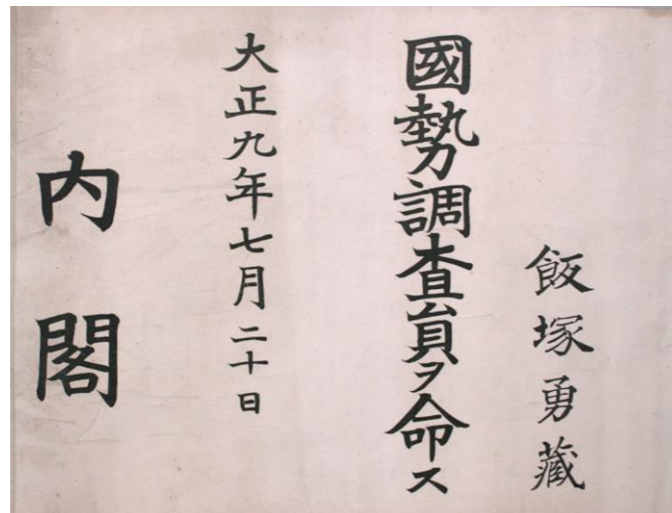 飯塚勇藏
國勢調査員ヲ命ス
大正九年七月二十日
内閣